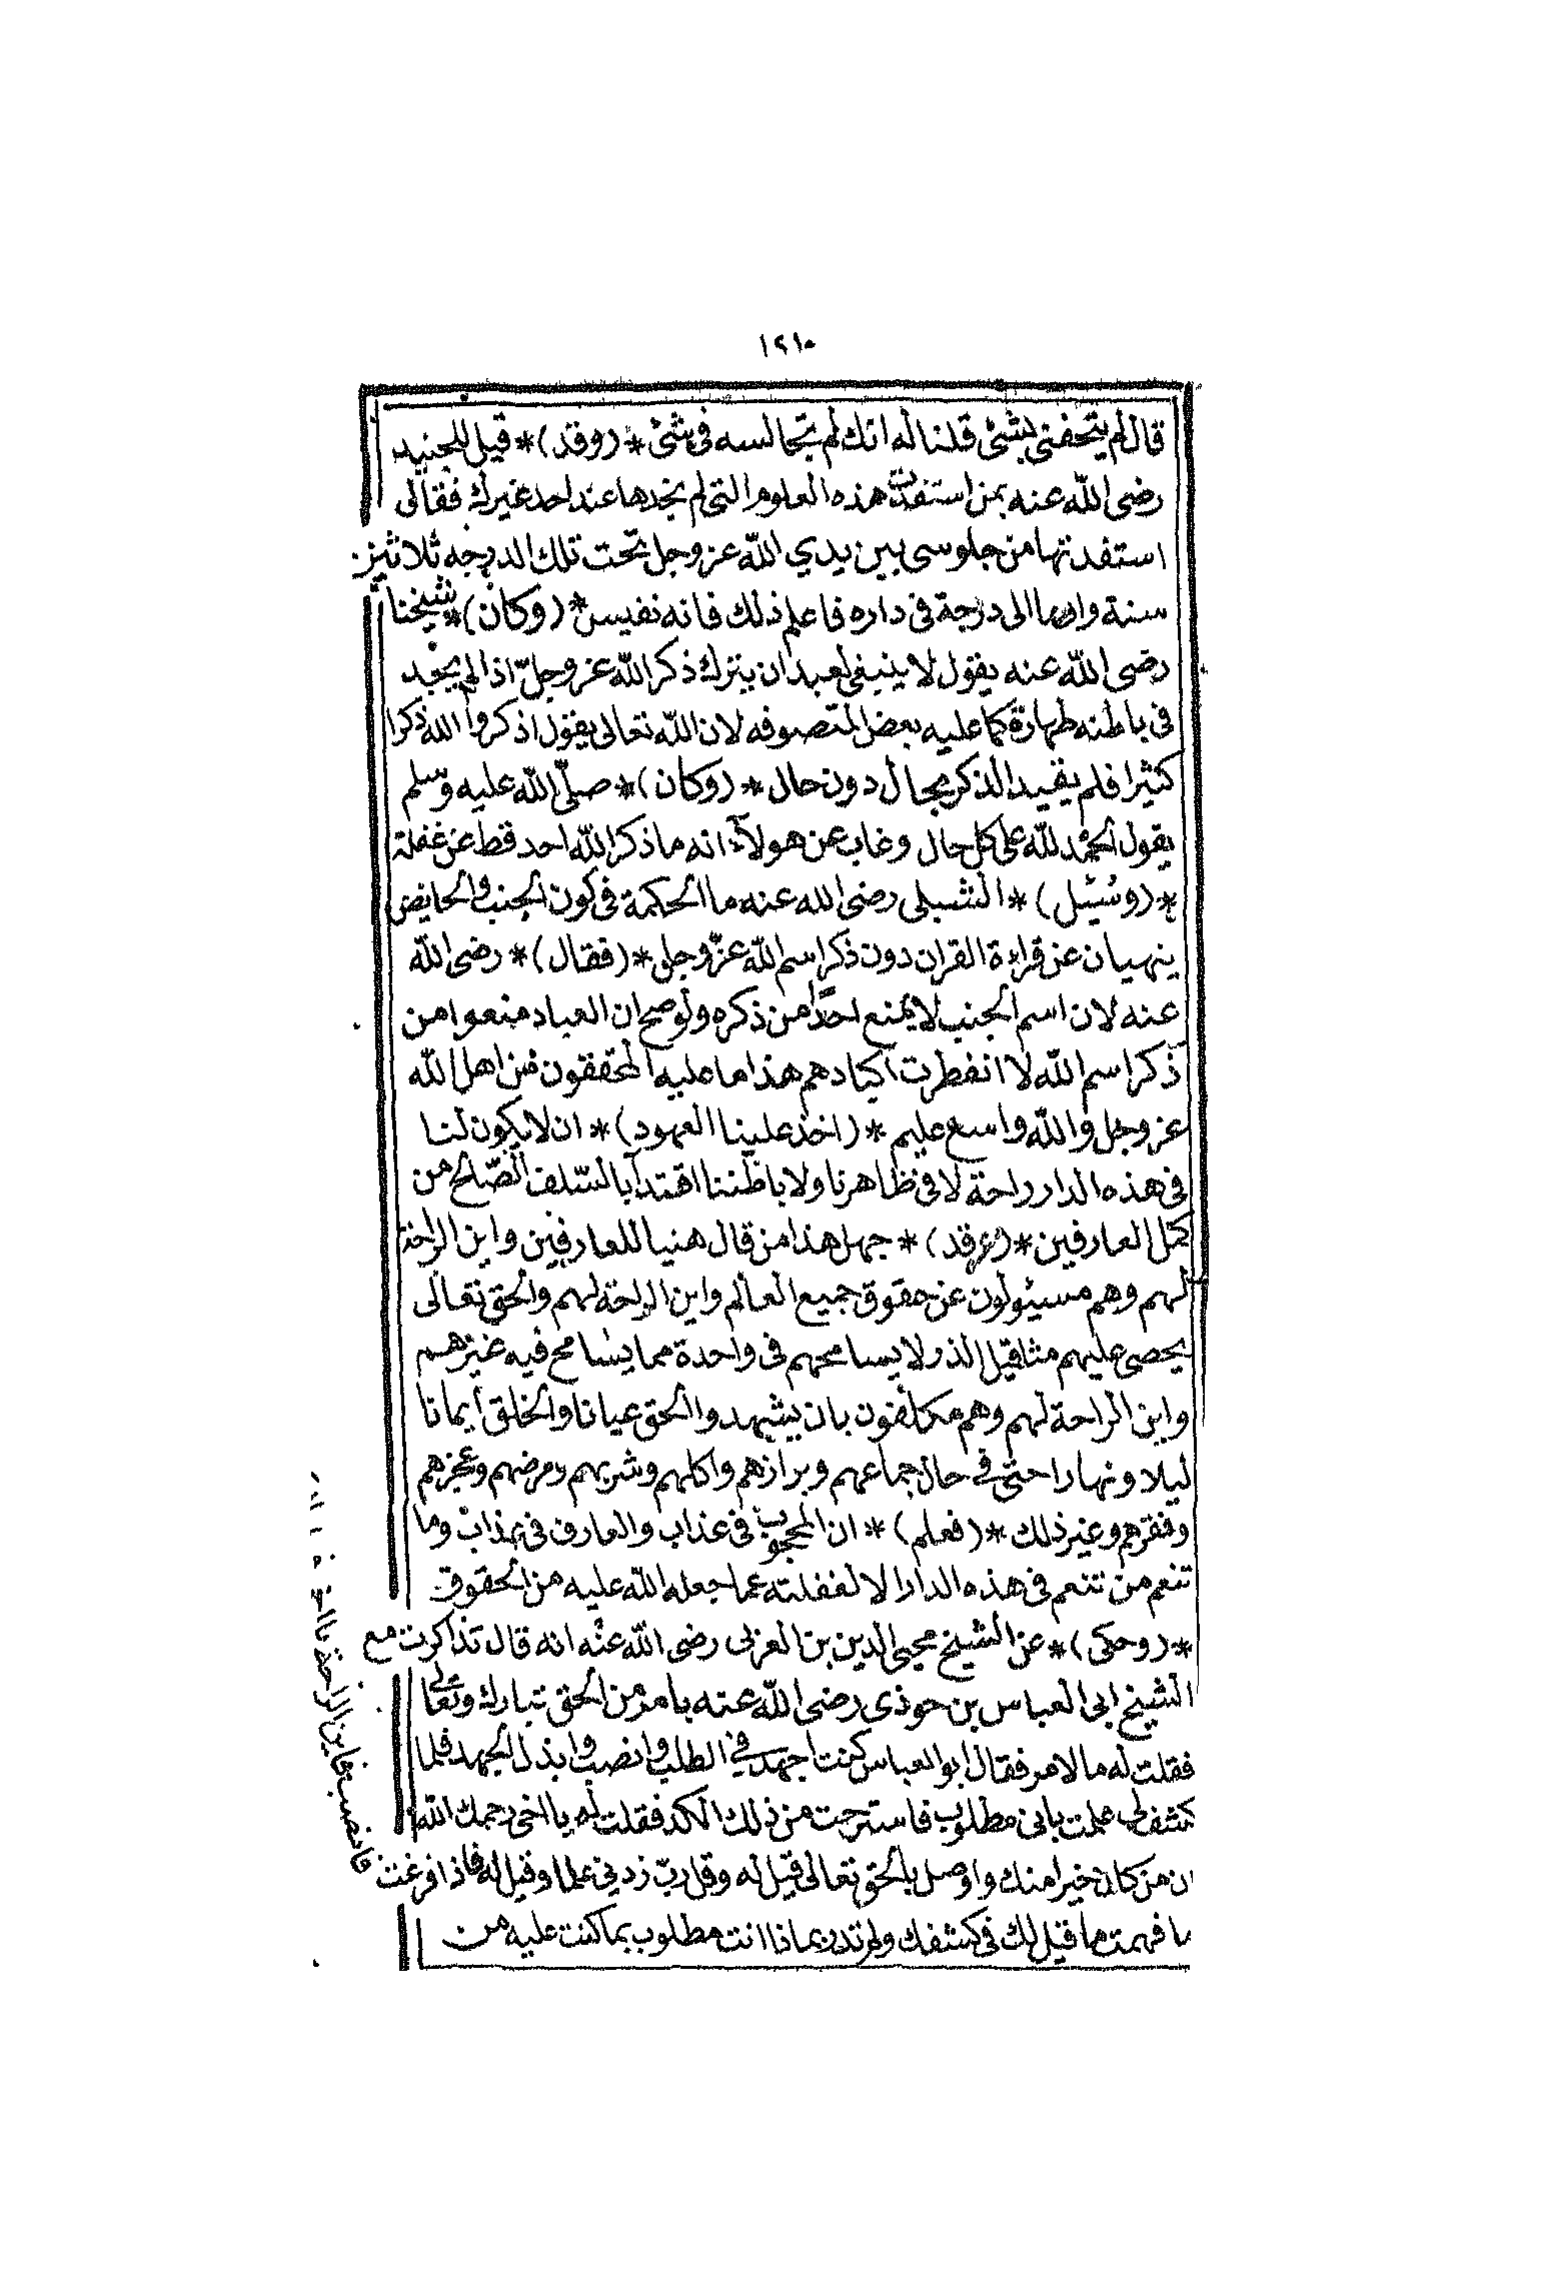 ١٢١٠
قال لم يتحفنى بشئ قلنا له انك لم تجالسه فى شئ * (وقد) * قيل للجنيد
رضى الله عنه بمن استفدت هذه العلوم التى لم نجدها عند احد غيرك فقال
استفدتها من جلوسى بين يدي الله عز وجل تحت تلك الدرجه ثلاثين
سنة واوما الى درجة فى داره فاعلم ذلك فانه نفيس * (وكان) * شيخنا
رضى الله عنه يقول لا ينبغى لعبد ان يترك ذكر الله عز وجلّ اذا لم يجد
فى باطنه طهارة كما عليه بعض المتصوفه لان الله تعالى يقول اذكروا الله ذكرا
كثيرا فلم يقيد الذكر بحال دون حال * (وكان) * صلّى الله عليه وسلم
يقول الحمد لله على كل حال وغاب عن هولاء انه ما ذكر الله احد قط عن غفلة
* (وسُئِل) * الشبلى رضى الله عنه ما الحكمة فى كون الجنب والحايض
ينهيان عن قراءة القران دون ذكر اسم الله عزّ وجل * (فقال) * رضى الله
عنه لان اسم الجنب لا يمنع احدًا من ذكره ولو صح ان العباد منعوا من
ذكر اسم الله لا انفطرت اكبادهم هذا ما عليه المحققون من اهل الله
عز وجل والله واسع عليم * (اخذ علينا العهود) * ان لا يكون لنا
فى هذه الدار راحة لا فى ظاهرنا ولا باطننا اقتدآ بالسّلف الصّالح من
كمّل العارفين * (وقد) * جهل هذا من قال هنيا للعارفين واين الراحة
لهم وهم مسيئولون عن حقوق جميع العالم واين الراحة لهم والحق تعالى
يحصى عليهم مثاقيل الذر لا يسامحهم فى واحدة مما يسامح فيه غيرهم
واين الراحة لهم وهم مكلفون بان يشهدوا الحق عيانا والخلق ايمانا
ليلا ونهارا حتى فى حال جماعهم وبرازهم واكلهم وشربهم ومرضهم وعجزهم
وفقرهم وغير ذلك * (فعلم) * ان المحجوب فى عذاب والعارف فى عذاب وما
تنعم من تنعم فى هذه الدار الا لغفلته عما جعله الله عليه من الحقوق
* (وحكى) * عن الشيخ محيى الدين بن العربى رضى الله عنه انه قال تذاكرت مع
الشيخ ابى العباس بن جوذى رضى الله عنه بامر من الحق تبارك وتعالى
فقلت له ما الامر فقال ابو العباس كنت اجهد فى الطلب وانصب وابذل الجهد فلما
كشف لى علمت بانى مطلوب فاسترحت من ذلك الكد فقلت له يا اخى رحمك الله
ان من كان خيرا منك واوصل بالحق تعالى قيل له وقل ربّ زدنى علما وقيل له فاذا فرغت
فانصب فاين الراحة يا اخى
ما فهمت ما قيل لك فى كشفك ولم تدر بماذا انت مطلوب بما كنت عليه من